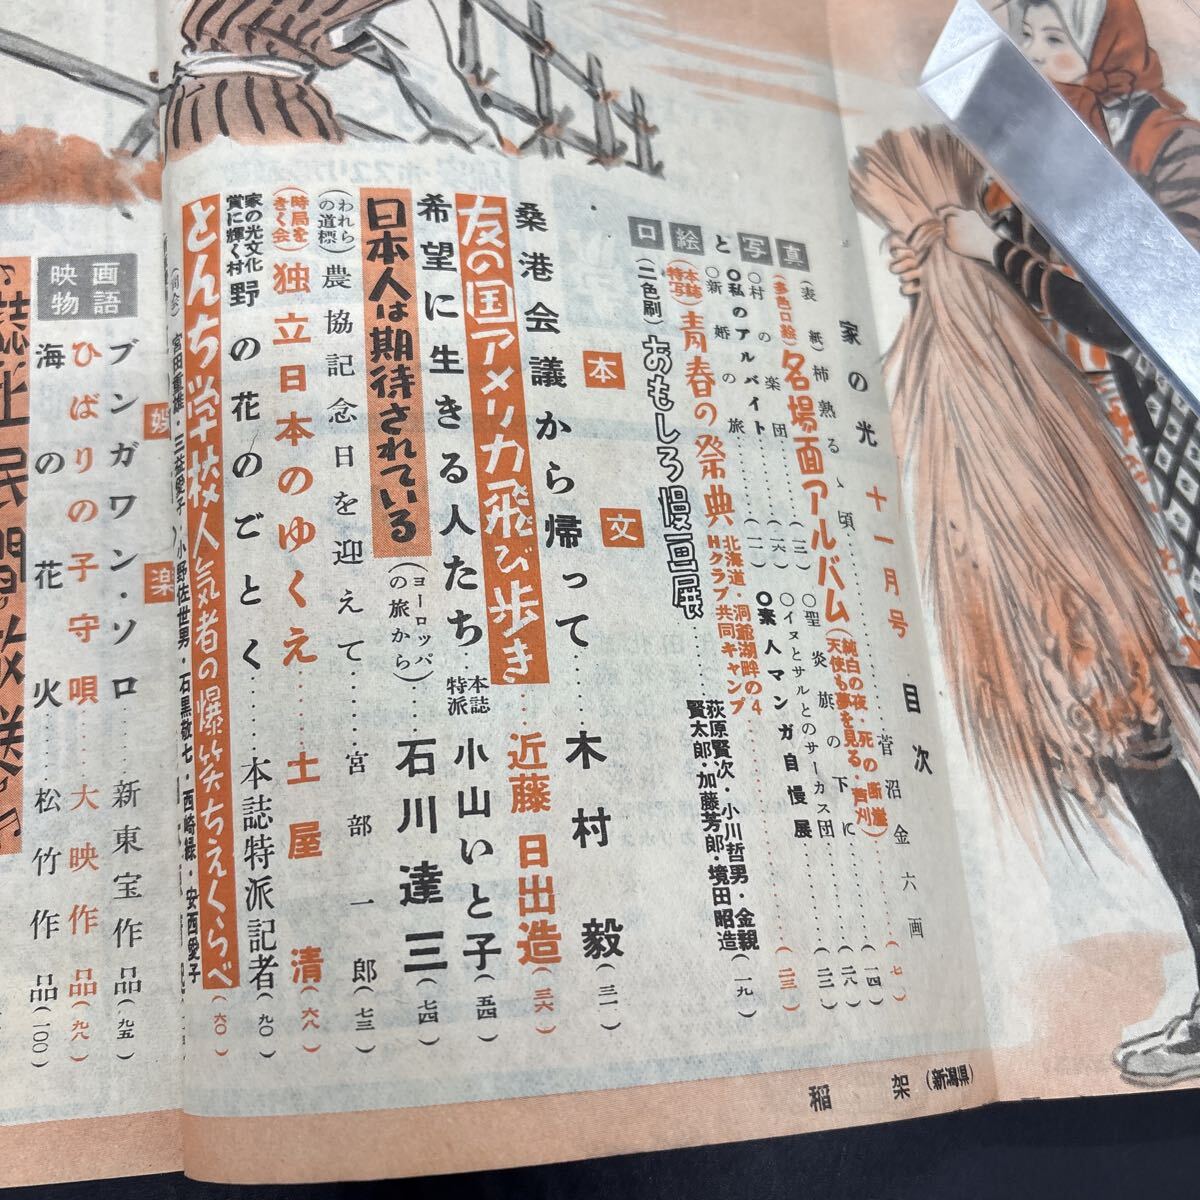 家の光 十一月号 目次
(表紙)柿熟るゝ頃……菅沼金六画
口絵と写真
(多色口絵)名場面アルバム(純白の夜・死の断崖 天使も夢を見る・芦刈)……(七)
○村の楽団……(三)
○聖炎旗の下に……(一四)
●私のアルバイト……(六)
○イヌとサルとのサーカス団……(二八)
○新婚の旅……(一一)
●素人マンガ自慢展……(二二)
(本誌特写)青春の祭典 北海道・洞爺湖畔の4Hクラブ共同キャンプ……(二三)
(二色刷)おもしろ漫画展 荻原賢次・小川哲男・金親賢太郎・加藤芳郎・境田昭造(一九)
本文
桑港会議から帰って……木村毅(三一)
友の国アメリカ飛び歩き 近藤日出造(三六)
希望に生きる人たち 本誌特派 小山いと子(五四)
日本人は期待されている(ヨーロッパの旅から) 石川達三(七四)
(われらの道標)農協記念日を迎えて……宮部一郎(七三)
(時局をきく会)独立日本のゆくえ……土屋清(六八)
家の光文化賞に輝く村 野の花のごとく……本誌特派記者(九〇)
とんち学校人気者の爆笑ちえくらべ(六〇)
宮田重雄・三益愛子・小野佐世男・石黒敬七・西崎緑・安西愛子
娯楽
映画物語
ブンガワン・ソロ……新東宝作品(九五)
ひばりの子守唄……大映作品(九八)
海の花火……松竹作品(一〇〇)
稲架(新潟県)